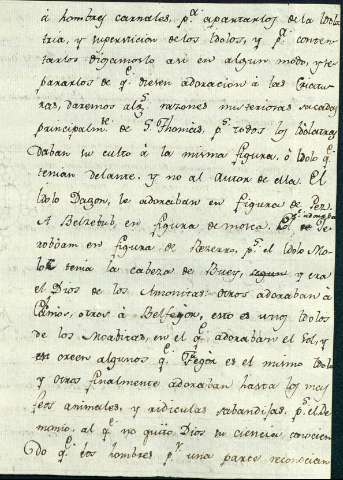 á hombres carnales, p.ª apartarlos de la Idola
tria, y supersticion de los Idolos, y p.ª conten
tarlos digamoslo asi en algun modo, y se
pararlos de q.e diesen adoracion á las Criatu
ras, daremos alg.s razones misteriosas sacadas
principalm.te de S. Thomas, p.s todos los Idolatras
daban su culto á la misma figura, ó Idolo q.e
tenian delante, y no al Autor de ella. El
Idolo Dagon, le adoraban en figura de Pez.
A Belzebub, en figura de mosca, de Je
roboam en figura de Bezerro, p.s el Idolo Mo
loc tenia la cabeza de Buey, y era
el Dios de los Amonitas: otros adoraban á
Camos, otros á Belfegor, esto es unos Idolos
de los Moabitas, en el q.e adoraban el Sol, y
creen algunos q.e Fegor es el mismo Idolo
y otros finalmente adoraban hasta los mas
feos animales, y ridiculas sabandijas, p.s el De
monio, al q.e no quitó Dios su ciencia, conocien
do q.e los hombres p.r una parte reconocian